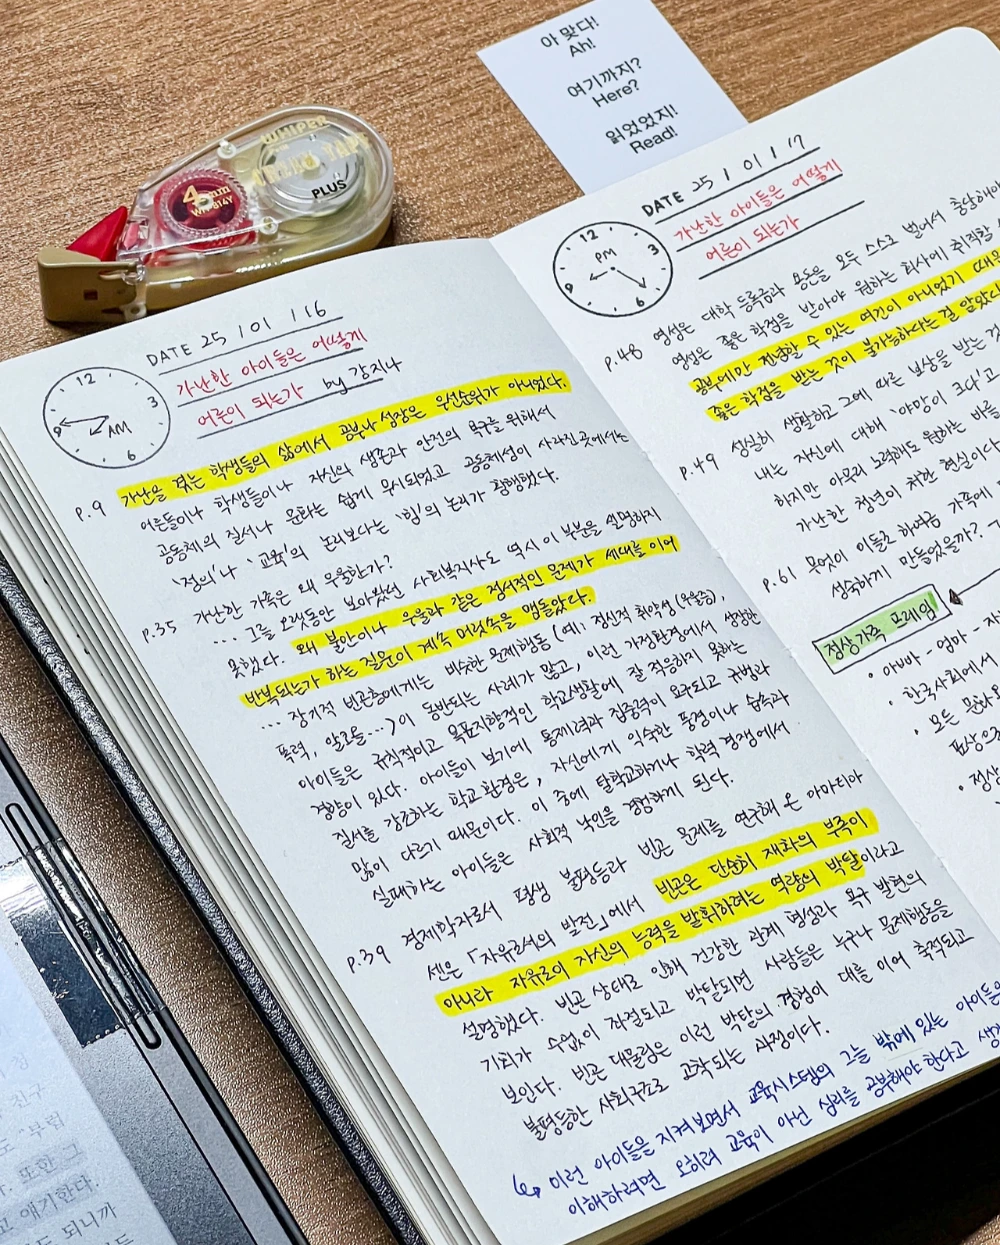 아 맞다!
Ah!
여기까지?
Here?
읽었었지!
Read!
WHIPER
PLUS
4mm
WH-814Y
DATE 25 / 01 / 16
12
3
6
9
AM
가난한 아이들은 어떻게
어른이 되는가 by 강지나
p.9 가난을 겪는 학생들의 삶에서 공부나 성양은 우선순위가 아니었다.
어른들이나 학생들이나 자신의 생존과 안전의 욕구를 위해서
공동체의 질서나 문화는 쉽게 무시되었고 공동체성이 사라진 곳에서는
'정의'나 '교육'의 논리보다는 '힘'의 논리가 팽행했다.
p.35 가난한 가족은 왜 우울한가?
... 그를 오랫동안 보아왔던 사회복지사도 역시 이 부분을 설명하지
못했다. 왜 불안이나 우울과 같은 정서적인 문제가 세대를 이어
반복되는가 하는 질문이 계속 머릿속을 맴돌았다.
... 장기적 빈곤층에게는 비슷한 문제행동 (예: 정신적 취약성(우울증),
폭력, 알코올...)이 동반되는 사례가 많고, 이런 가정환경에서 성장한
아이들은 규칙적이고 목표지향적인 학교생활에 잘 적응하지 못하는
경향이 있다. 아이들이 보기에 통제력과 집중력이 요구되고 규범과
질서를 강조하는 학교 환경은, 자신에게 익숙한 풍경이나 습속과
많이 다르기 때문이다. 이 중에 탈학교하거나 학력 경쟁에서
실패하는 아이들은 사회적 낙인을 경험하게 된다.
p.39 경제학자로서 평생 불평등과 빈곤 문제를 연구해 온 아마티아
센은 「자유로서의 발전」에서 빈곤은 단순히 재화의 부족이
아니라 자유로이 자신의 능력을 발휘하려는 역량의 박탈이라고
설명했다. 빈곤 상태로 인해 건강한 관계 형성과 욕구 발현의
기회가 수없이 좌절되고 박탈되면 사람들은 누구나 문제행동을
보인다. 빈곤 대물림은 이런 박탈의 경험이 대를 이어 축적되고
불평등한 사회구조로 고착되는 과정이다.
↳ 이런 아이들을 지켜보면서 교육시스템의 그늘 밖에 있는 아이들을
이해하려면 오히려 교육이 아닌 심리를 공부해야 한다고 생
DATE 25 / 01 / 17
12
3
6
9
PM
가난한 아이들은 어떻게
어른이 되는가
p.48 영성은 대학 등록금과 용돈을 모두 스스로 벌어서 충당해야
영성은 좋은 학점을 받아야 원하는 회사에 취직할
공부에만 전념할 수 있는 여건이 아니었기 때문
좋은 학점을 받는 것이 불가능하다는 걸 알았다
p.49 성실히 생활하고 그에 따른 보상을 받는 것
내는 자신에 대해 '야망이 크다'고
하지만 아무리 노력해도 원하는 바를
가난한 청년이 처한 현실이다
p.61 무엇이 이들로 하여금 가족에
성숙하게 만들었을까?
정상가족 프레임
• 아빠 - 엄마 - 자
• 한국사회에서
• 모든 문화
표상으
• 정상
친구
도 '부럽
또한 그
고 얘기한다.
도 되니까